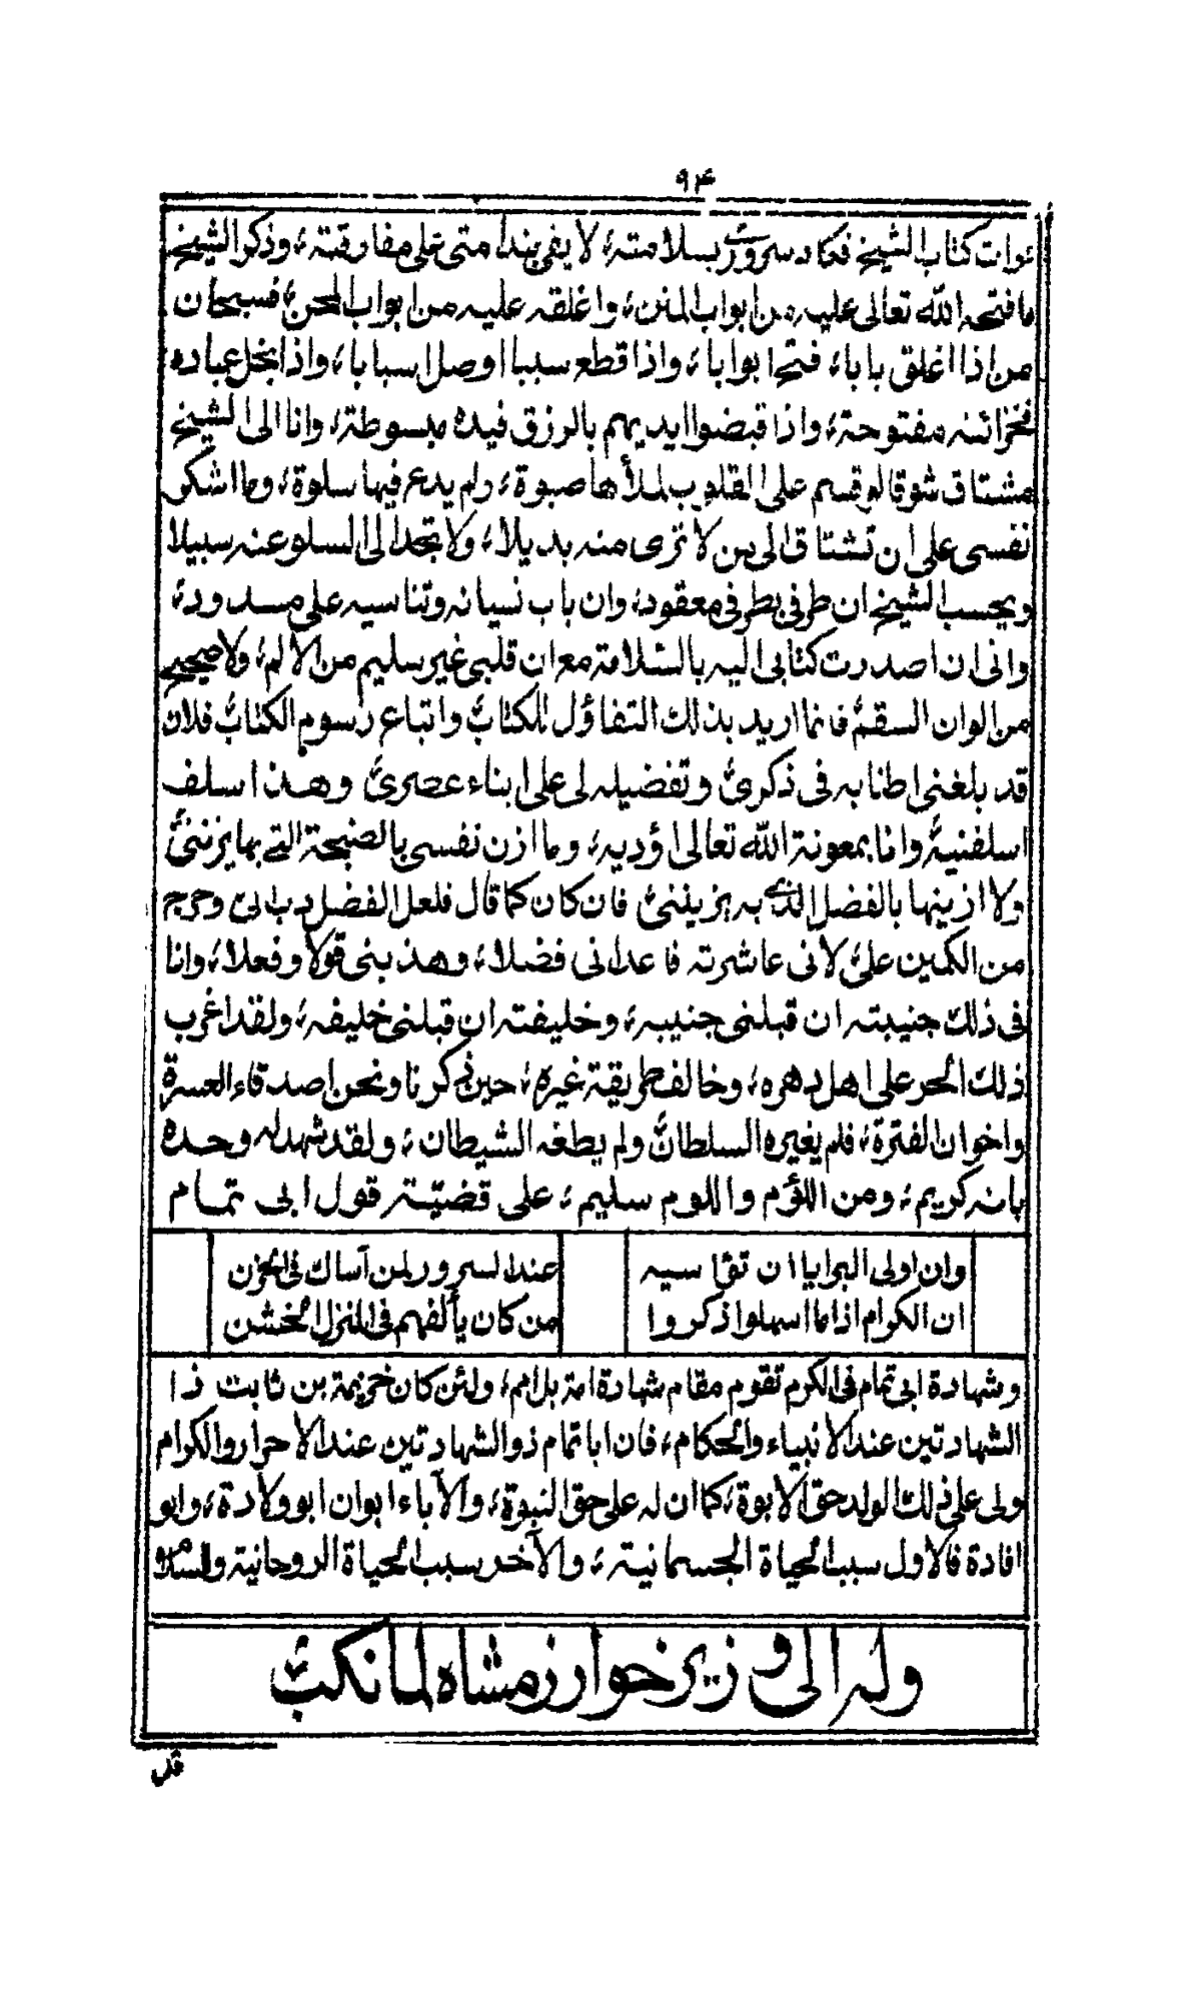 ٩٤
عوات كتاب الشيخ فكاد سروري بسلامته، لا يفي بندامتي على مفارقته، وذكر الشيخ
ما فتحه الله تعالى عليه من ابواب المنن، واغلقه عليه من ابواب المحن، فسبحان
من اذا اغلق بابا، فتح ابوابا، واذا قطع سببا اوصل اسبابا، واذا بخل عباده
فخزائنه مفتوحة، واذا قبضوا ايديهم بالرزق فيده مبسوطة، وانا الى الشيخ
مشتاق شوقا لو قسم على القلوب لملأها صبوة، ولم يدع فيها سلوة، وما اشكر
نفسي على ان تشتاق الى من لا ترى منه بديلا، ولا تجد الى السلو عنه سبيلا
ويحسب الشيخ ان طرفي بطرفي معقود، وان باب نسيانه وتناسيه على مسدود،
واني ان اصدرت كتابي اليه بالسلامة مع ان قلبي غير سليم من الالم، ولا صحيح
من الوان السقم فانما اريد بذلك التفاؤل للكتاب واتباع رسوم الكتاب فلان
قد بلغني اطنابه في ذكري وتفضيله لي على ابناء عصري وهذا سلف
اسلفنيه وانا بمعونة الله تعالى اؤديه، وما ازن نفسي بالصنجة التي بها يزنني
ولا ازينها بالفضل الذي به يزينني فان كان كما قال فلعل الفضل دب الي وخرج
من الكمين علي لاني عاشرته فاعداني فضلا، وهذبني قولا وفعلا، وانا
في ذلك جنيبته ان قبلني جنيبه، وخليفته ان قبلني خليفه، ولقد اغرب
ذلك الحر على اهل دهره، وخالف طريقة غيره، حين ذكرنا ونحن اصدقاء العسرة
واخوان الفترة، فلم يغيره السلطان ولم يطغه الشيطان، ولقد شهد له وحده
بانه كريم، ومن اللؤم واللوم سليم، على قضيّة قول ابي تمام
وان اولى البرايا ان تواسيه عند السرور لمن آساك في الحزن
ان الكرام اذا ما اسهلوا ذكروا من كان يألفهم في المنزل الخشن
وشهادة ابي تمام في الكرم تقوم مقام شهادة امة بل امم، ولئن كان خزيمة بن ثابت ذا
الشهادتين عند الانبياء والحكام، فان ابا تمام ذو الشهادتين عند الاحرار والكرام
ولي على ذلك الولد حق الابوة، كما ان له على حق النبوة، والآباء ابوان ابو ولادة، وابو
افادة فالاول سبب الحياة الجسمانية، والآخر سبب الحياة الروحانية والسلام
وله الى وزير خوارزمشاه لما نكب
قد